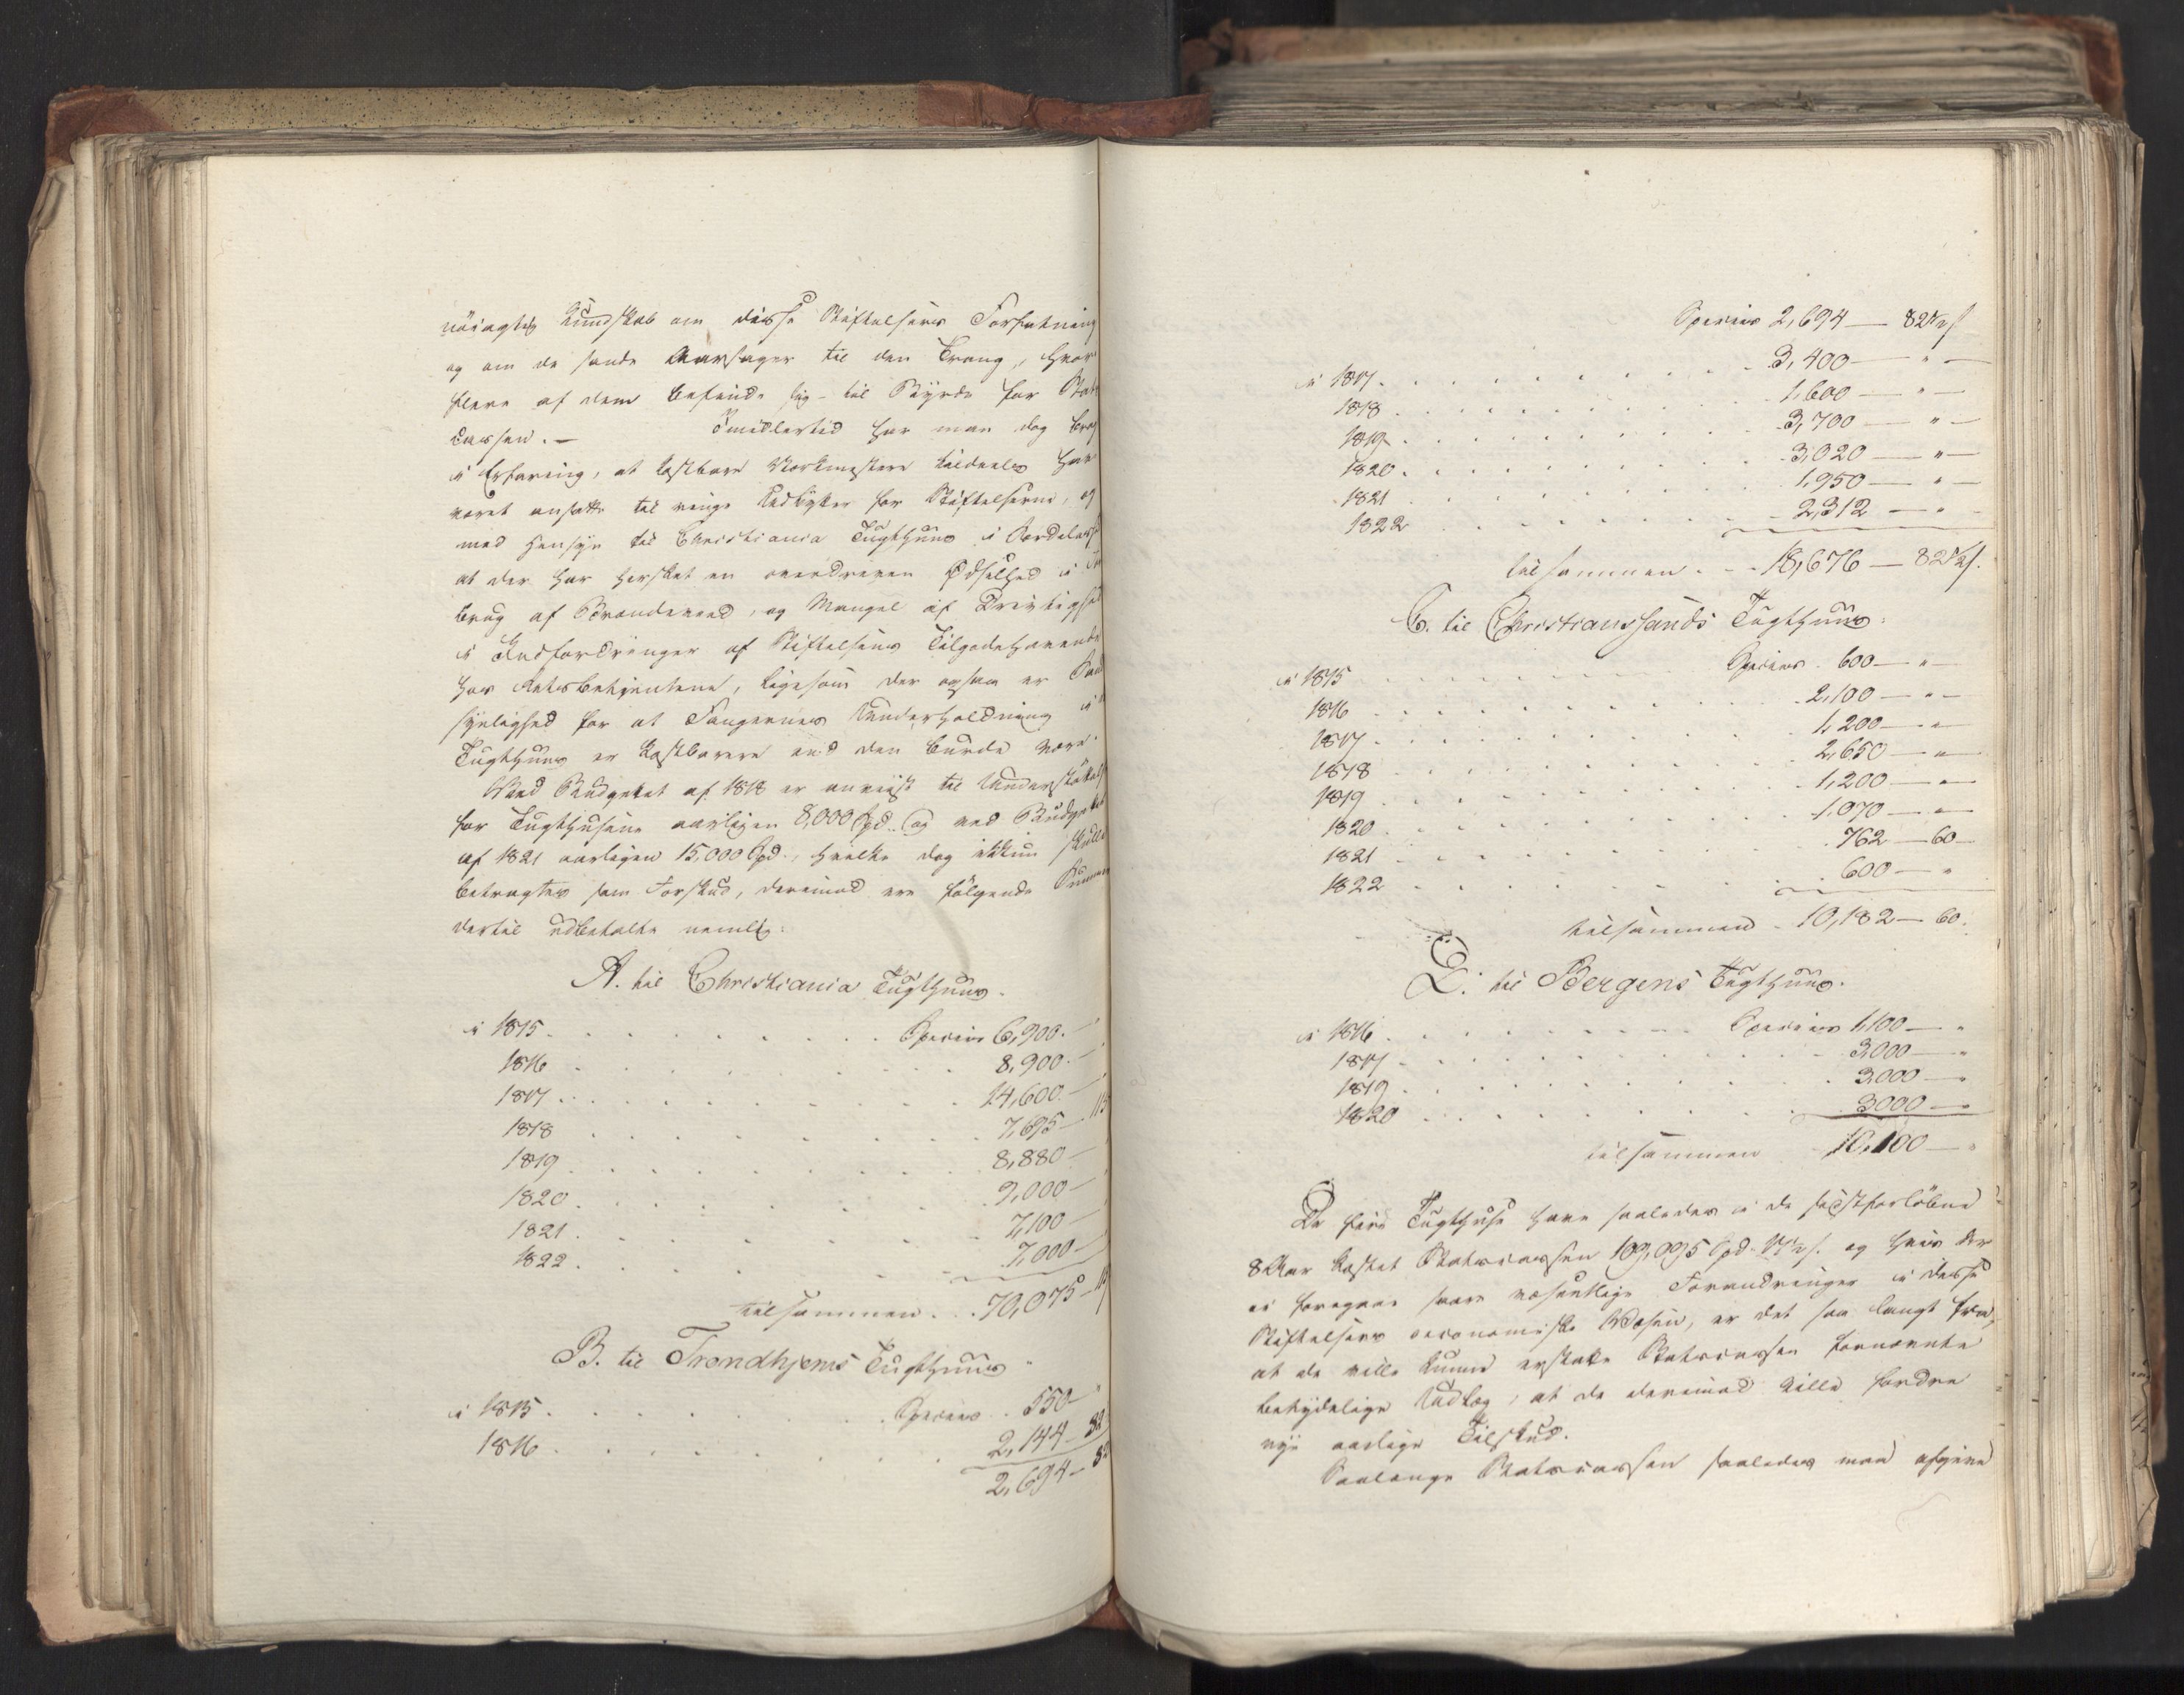 nöiagtig Kundskab om disse Stiftelsers Forfatning
og om de sande Aarsager til den Trang, hvor
flere af dem befinde sig til Byrde for Stats
Cassen. — Imidlertid har man dog bragt
i Erfaring, at kostbare Værkmestere tildeels har
været ansatte til ringe Nytte for Stiftelserne, og
med Hensyn til Christiania Tugthuus i Særdeleshed
at der har hersket en overdreven Ødselhed i
brug af Brændeveed, og Mangel af Drivtighed
i Inddfordringer af Stiftelsens Tilgodehavende
hos Retsbetjentene, ligesom der ogsaa er Sand
synlighed for at Fangernes Underholdning i
Tugthuus er kostbarere end den burde være.
Ved Budgettet af 1818 er anviist til Understøttelse
for Tugthusene aarligen 8,000 Spd. og ved Budgettet
af 1821 aarligen 15,000 Spd., hvilke dog ikkun skulle
betragtes som Forskud, derimod ere følgende Summer
dertil udbetalte nemlig:
A. til Christiania Tugthuus.
i 1815 . . . . . . . . Species 6,900. —
1816 . . . . . . . . 8,900. —
1817 . . . . . . . . 14,600. —
1818 . . . . . . . . 7,695 — 115
1819 . . . . . . . . 8,880 —
1820 . . . . . . . . 9,000 —
1821 . . . . . . . . 7,100 —
1822 . . . . . . . . 7,000 —
tilsammen . . 70,075 — 115
B. til Trondhjems Tugthuus
i 1815 . . . . . . . . Species . 550 "
1816 . . . . . . . . 2,144 — 82
2,694 — 82
Species 2,694 — 82½ s
i 1817 . . . . . . . . 3,400 — " —
1818 . . . . . . . . 1,600 — " —
1819 . . . . . . . . 3,700 — " —
1820 . . . . . . . . 3,020 — " —
1821 . . . . . . . . 1,950 — " —
1822 . . . . . . . . 2,312 — " -
tilsammen . . . 18,676 — 82½ s.
C. til Christianssands Tugthuus:
i 1815 . . . . . . . . Species . 600 — " —
1816 . . . . . . . . 2,100 — " —
1817 . . . . . . . . 1,200 — " —
1818 . . . . . . . . 2,650 — " —
1819 . . . . . . . . 1,200 — " —
1820 . . . . . . . . 1,070 — " —
1821 . . . . . . . . 762 — 60 —
1822 . . . . . . . . 600 — "
tilsammen . 10,182 — 60.
D. til Bergens Tugthuus.
i 1816 . . . . . . . . Species 1,100 — "
1817 . . . . . . . . 3,000 — "
1819 . . . . . . . . 3,000 — "
1820 . . . . . . . . 3,000 — "
tilsammen 10,100 — "
De fire Tugthuse have saaledes i de sidstforløbne
8 Aar kostet Statscassen 109,095 Spd. 17½ s. og hvis der
ei foregaae store væsentlige Forandringer i disse
Stiftelsers oeconomiske Væsen, er det saa langt fra,
at de ville kunne erstatte Statscassen fornævnte
betydelige Udlæg, at de derimod ville fordre
nye aarlige Tilskud.
Saalænge Statscassen saaledes maa afgive